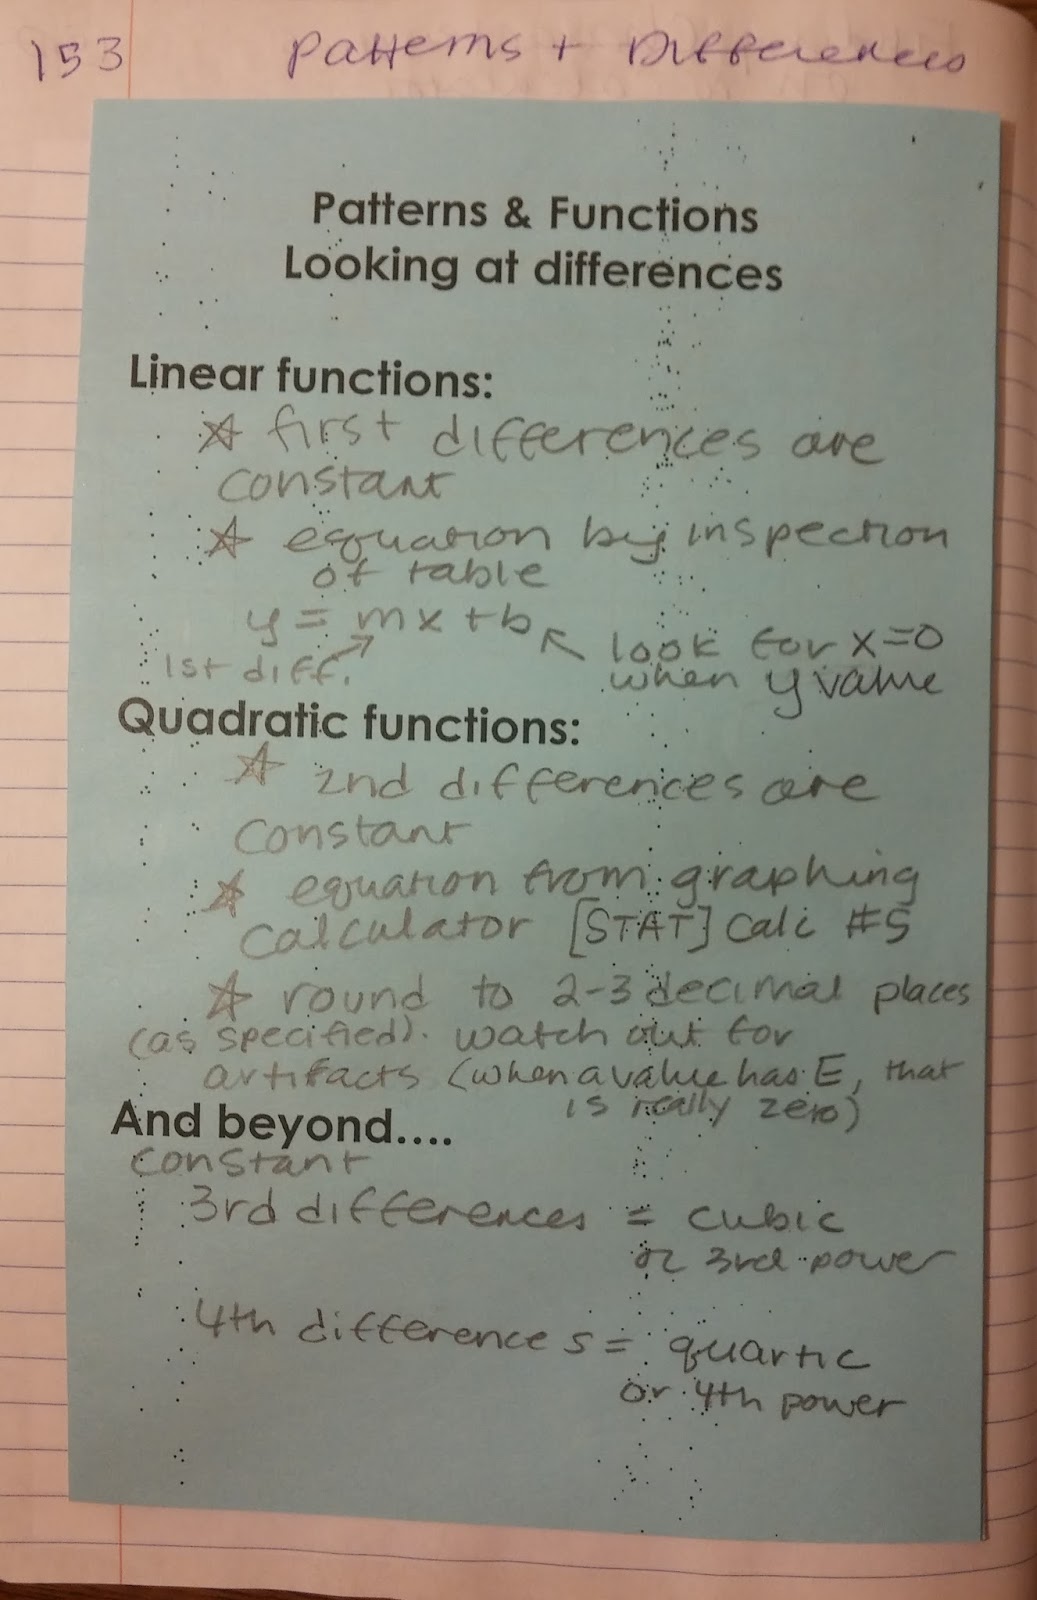 153 Patterns + Differences
Patterns & Functions
Looking at differences
Linear functions:
☆ first differences are
constant
☆ equation by inspection
of table
y = mx + b
1st diff. ↗ ↖ look for x=0
when y value
Quadratic functions:
☆ 2nd differences are
constant
☆ equation from graphing
calculator [STAT] calc #5
☆ round to 2-3 decimal places
(as specified). watch out for
artifacts (when a value has E, that
is really zero)
And beyond....
constant
3rd differences = cubic
or 3rd power
4th differences = quartic
or 4th power